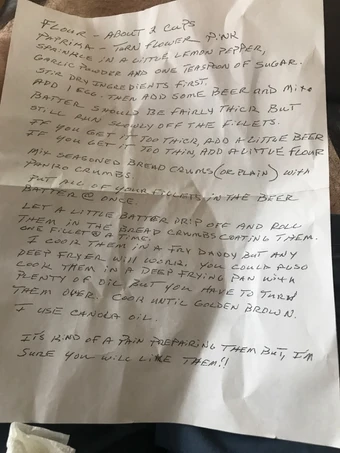 FLOUR - ABOUT 2 CUPS
PAPRIMA - TURN FLOWER PINK
SPRINKLE IN A LITTLE LEMON PEPPER,
GARLIC POWDER AND ONE TEASPOON OF SUGAR.
STIR DRY INGREDIENTS FIRST.
ADD 1 EGG. THEN ADD SOME BEER AND MIX
BATTER SHOULD BE FAIRLY THICK BUT
STILL RUN SLOWLY OFF THE FILLETS.
IF YOU GET IT TOO THICK, ADD A LITTLE BEER
IF YOU GET IT TOO THIN, ADD A LITTLE FLOUR
MIX SEASONED BREAD CRUMBS (OR PLAIN) WITH
PANKO CRUMBS.
PUT ALL OF YOUR FILLETS IN THE BEER
BATTER @ ONCE.
LET A LITTLE BATTER DRIP OFF AND ROLL
THEM IN THE BREAD CRUMBS COATING THEM.
ONE FILLET @ A TIME.
I COOK THEM IN A FRY DADDY BUT ANY
DEEP FRYER WILL WORK. YOU COULD ALSO
COOK THEM IN A DEEP FRYING PAN WITH
PLENTY OF OIL BUT YOU HAVE TO TURN
THEM OVER. COOK UNTIL GOLDEN BROWN.
I USE CANOLA OIL.
IT'S KIND OF A PAIN PREPARING THEM BUT, I'M
SURE YOU WILL LIKE THEM!!